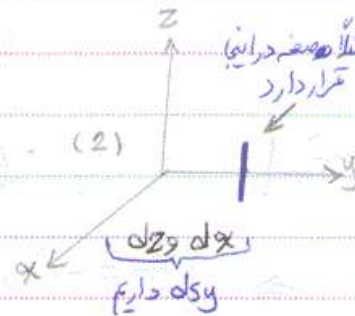 z
مثلاً صفحه در اینجا
قرار دارد
(2)
y
x
dz و dx
dsy داریم